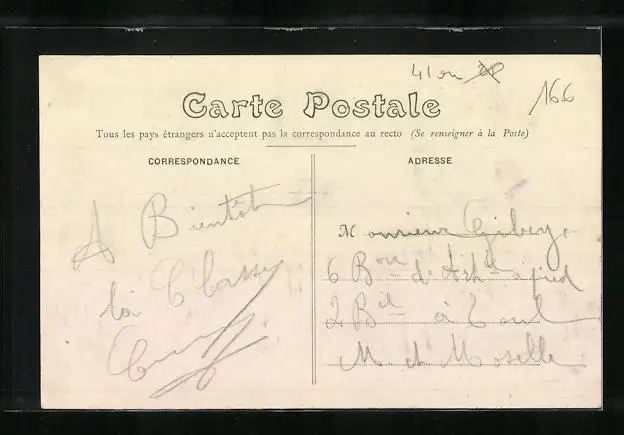 41 en
166
Carte Postale
Tous les pays étrangers n'acceptent pas la correspondance au recto (Se renseigner à la Poste)
CORRESPONDANCE
A Bientôt
la Classe
ADRESSE
Monsieur
6 Bon d'Artie à pied
2 Bie à Toul
M. et Moselle